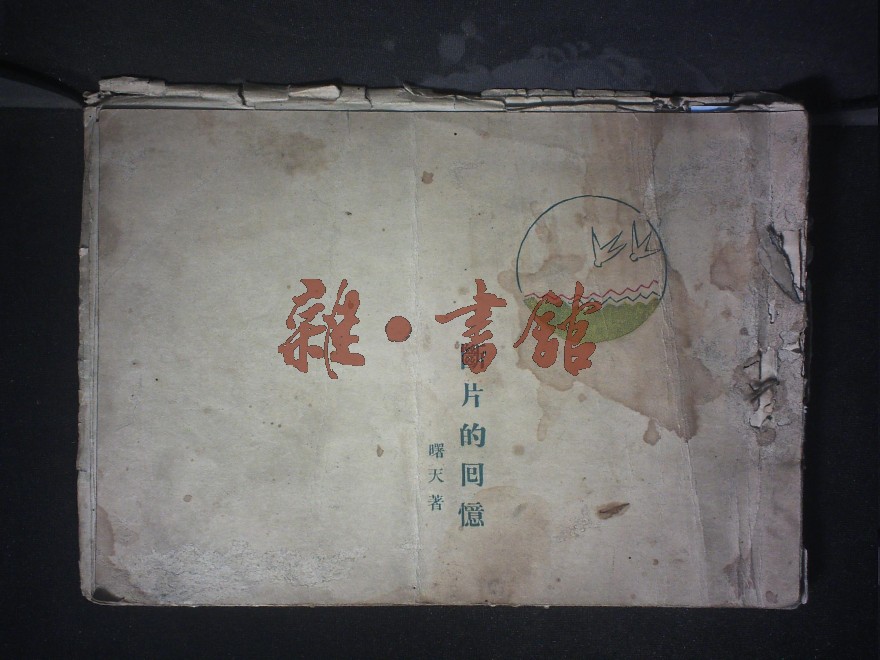 雜·書館
斷片的回憶
曙天著